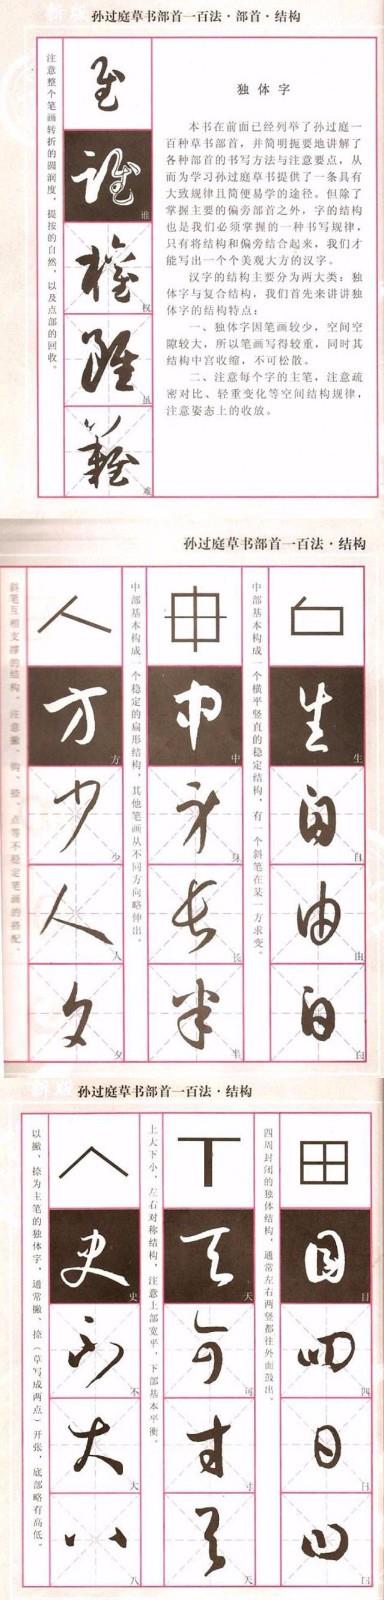 新版
孙过庭草书部首一百法·部首·结构
独体字
本书在前面已经列举了孙过庭一
百种草书部首，并简明扼要地讲解了
各种部首的书写方法与注意要点，从
而为学习孙过庭草书提供了一条具有
大致规律且简便易学的途径。但除了
掌握主要的偏旁部首之外，字的结构
也是我们必须掌握的一种书写规律，
只有将结构和偏旁结合起来，我们才
能写出一个个美观大方的汉字。
汉字的结构主要分为两大类：独
体字与复合结构，我们首先来讲讲独
体字的结构特点：
一、独体字因笔画较少，空间空
隙较大，所以笔画写得较重，同时其
结构中宫收缩，不可松散。
二、注意每个字的主笔，注意疏
密对比、轻重变化等空间结构规律，
注意姿态上的收放。
谁
权
虽
难
注意整个笔画转折的圆润度，提按的自然，以及点部的回收。
孙过庭草书部首一百法·结构
生
自
由
白
中部基本构成一个横平竖直的稳定结构，有一个斜笔在某一方求变。
中
身
长
半
中部基本构成一个稳定的扁形结构，其他笔画从不同方向略伸出。
方
少
人
夕
斜笔互相支撑的结构，注意撇、钩、捺、点等不稳定笔画的搭配。
新版
孙过庭草书部首一百法·结构
目
四
日
四周封闭的独体结构，通常左右两竖都往外面鼓出。
天
可
寸
天
上大下小，左右对称结构，注意上部宽平，下部基本平衡。
史
不
大
八
以撇、捺为主笔的独体字，通常撇、捺（草写成两点）开张，底部略有高低。